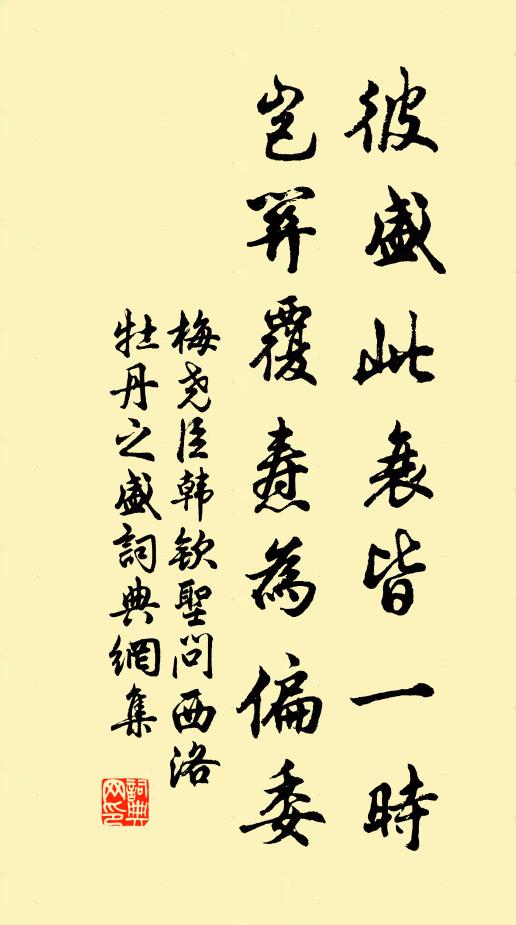 彼盛此衰皆一時
豈關覆燾為偏委
梅堯臣韓欽聖問西洛
牡丹之盛詞典網集
詞典網印